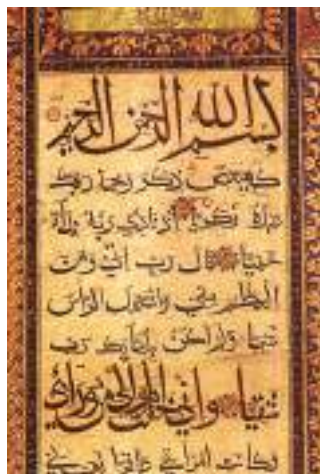 بسم الله الرحمن الرحيم
كهيعص ذكر رحمة ربك
عبده زكريا اذ نادى ربه نداء
خفيا قال رب اني وهن
العظم مني واشتعل الراس
شيبا ولم اكن بدعائك رب
شقيا واني خفت الموالي من وراي
وكانت امراتي عاقرا فهب لي